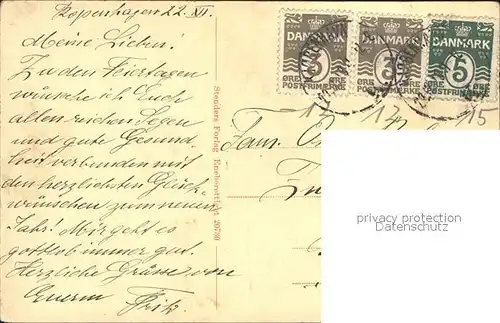 Kopenhagen 22. XII.
Meine Lieben!
Zu den Feiertagen
wünsche ich Euch
allen reichen Segen
und gute Gesund
heit verbunden mit
den herzlichsten Glück-
wünschen zum neuen
Jahr! Mir geht es
gottlob immer gut.
Herzliche Grüsse von
Euerm Fritz
Stenders Forlag Eneberettiget
DANMARK
3
ØRE ØRE
POSTFRIMÆRKE
DANMARK
3
ØRE ØRE
POSTFRIMÆRKE
DANMARK
5
ØRE ØRE
POSTFRIMÆRKE
Fam.
privacy protection
Datenschutz